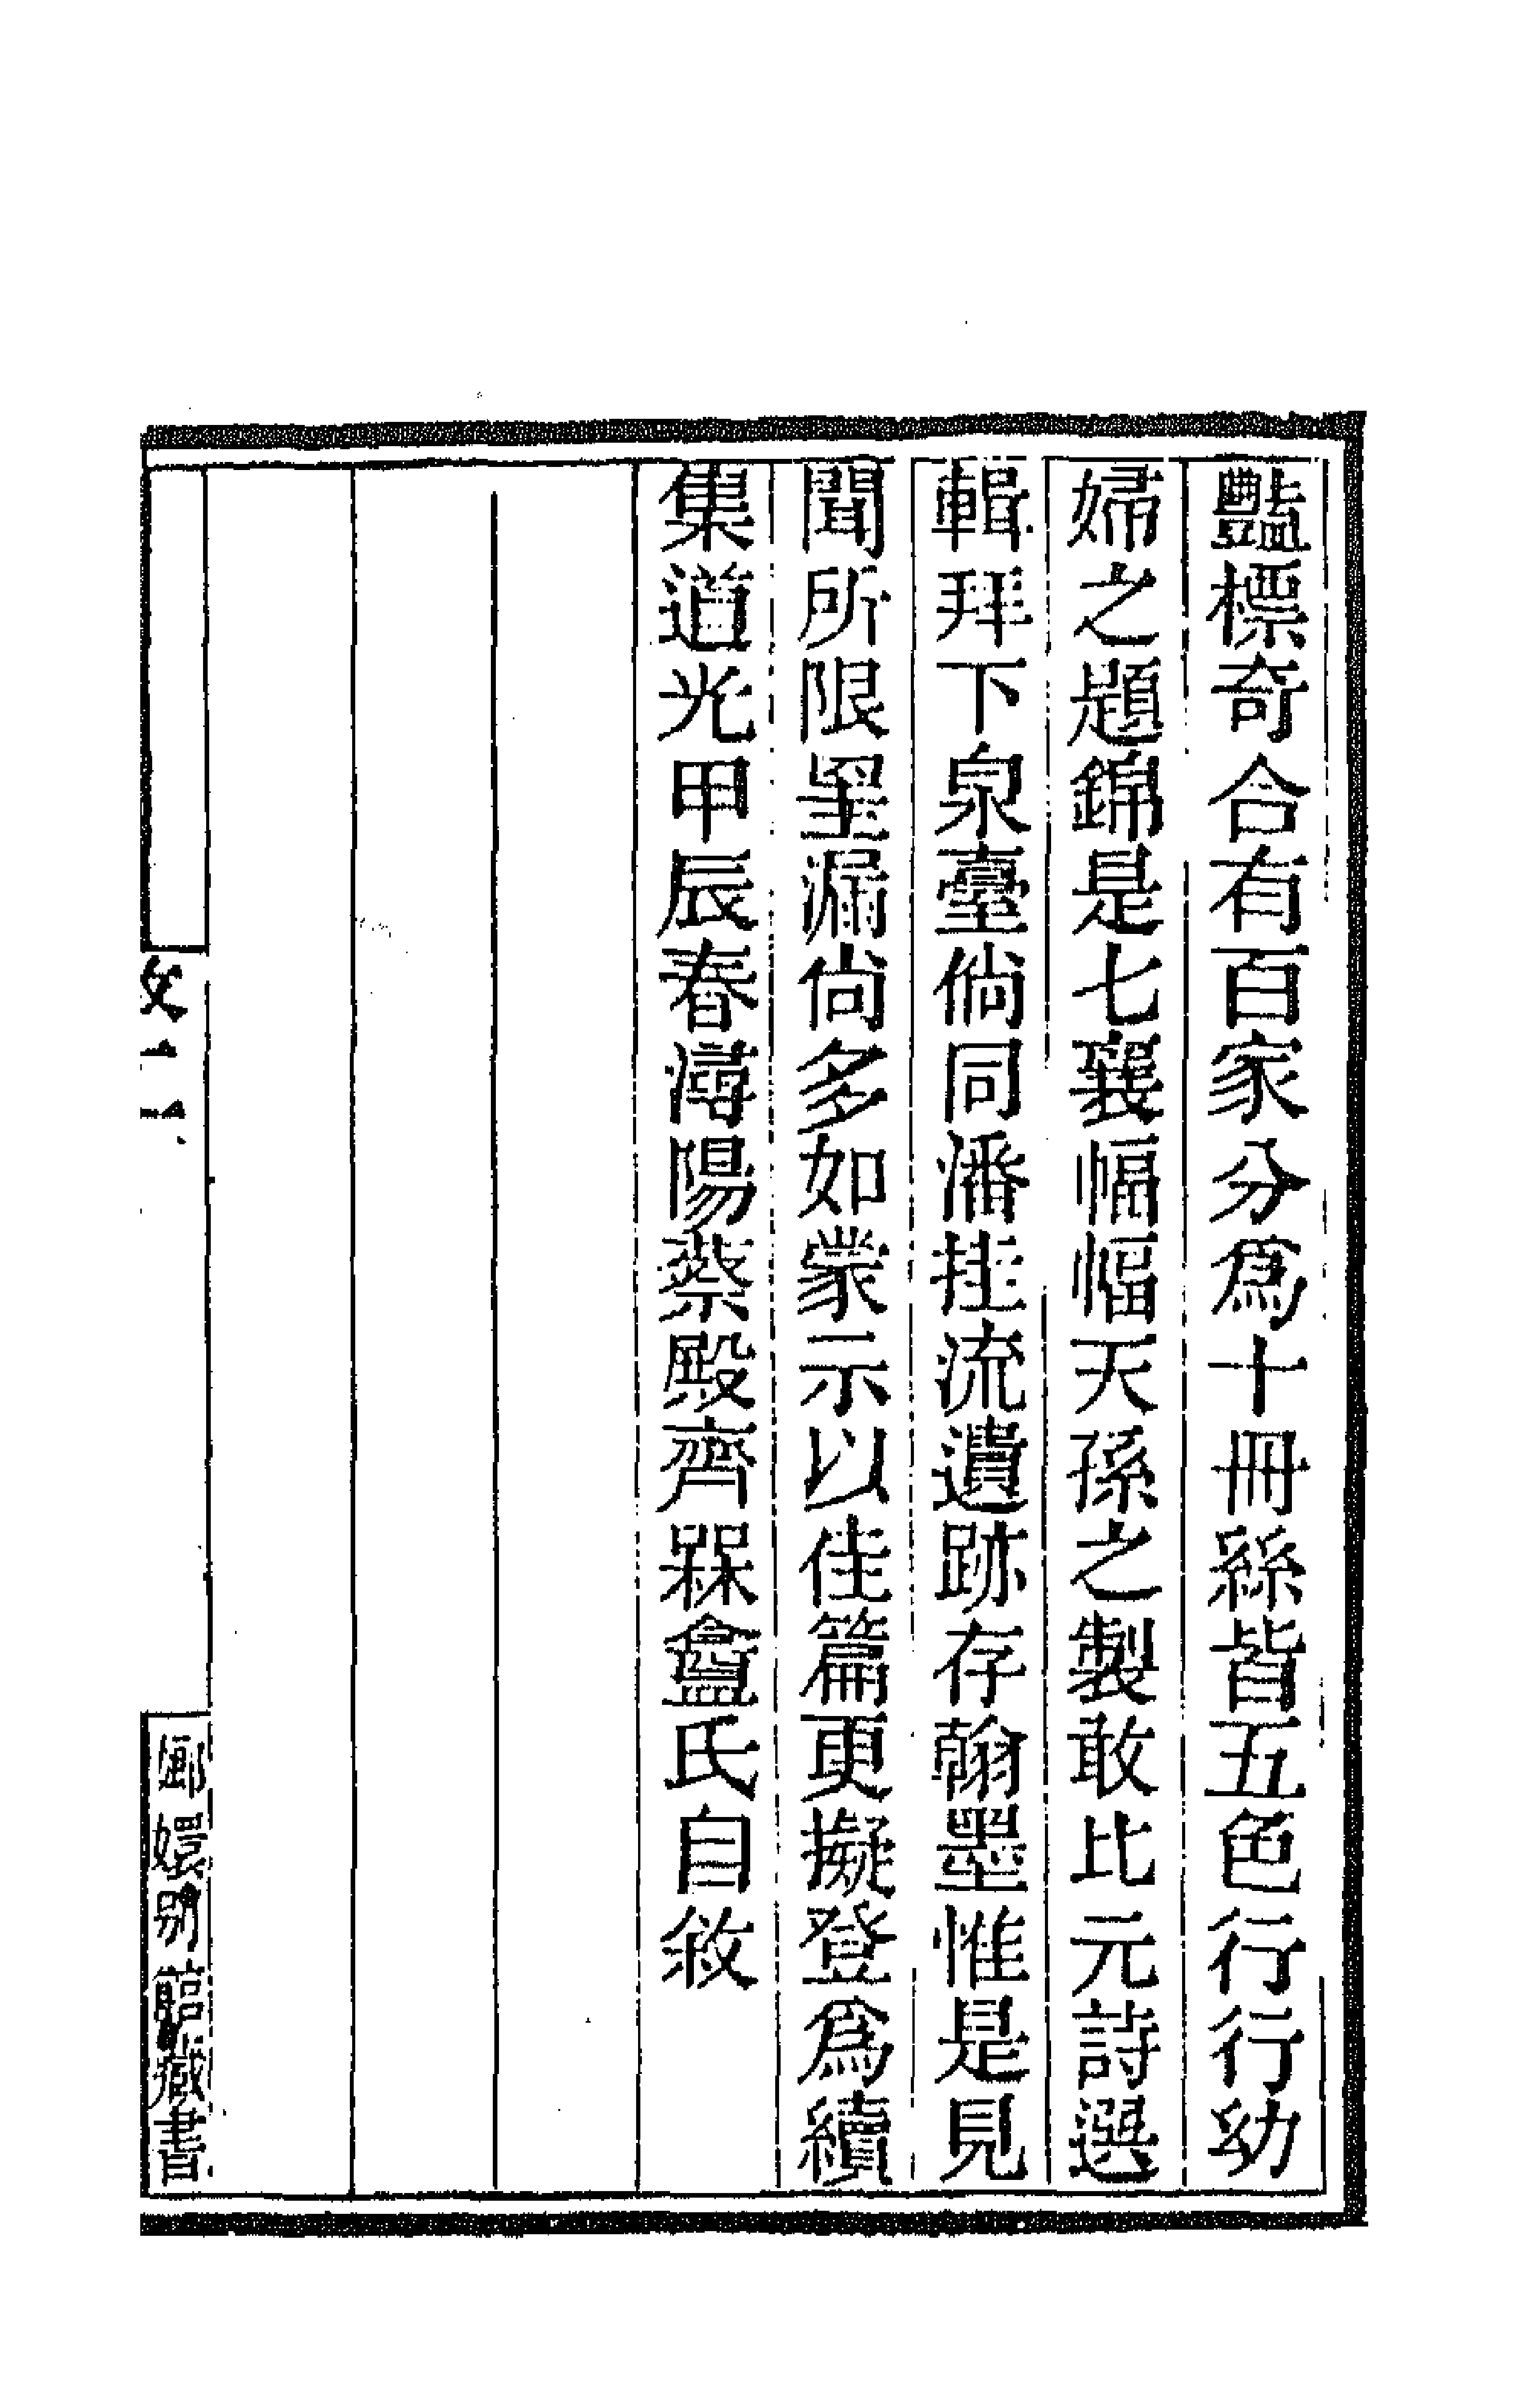 豔標奇合有百家分爲十冊絲皆五色行行幼
婦之題錦是七襄幅幅天孫之製敢比元詩選
輯拜下泉臺倘同潘挂流遺跡存翰墨惟是見
聞所限罣漏尙多如蒙示以佳篇更擬登爲續
集道光甲辰春潯陽蔡殿齊槑盦氏自敘
嬛別館藏書